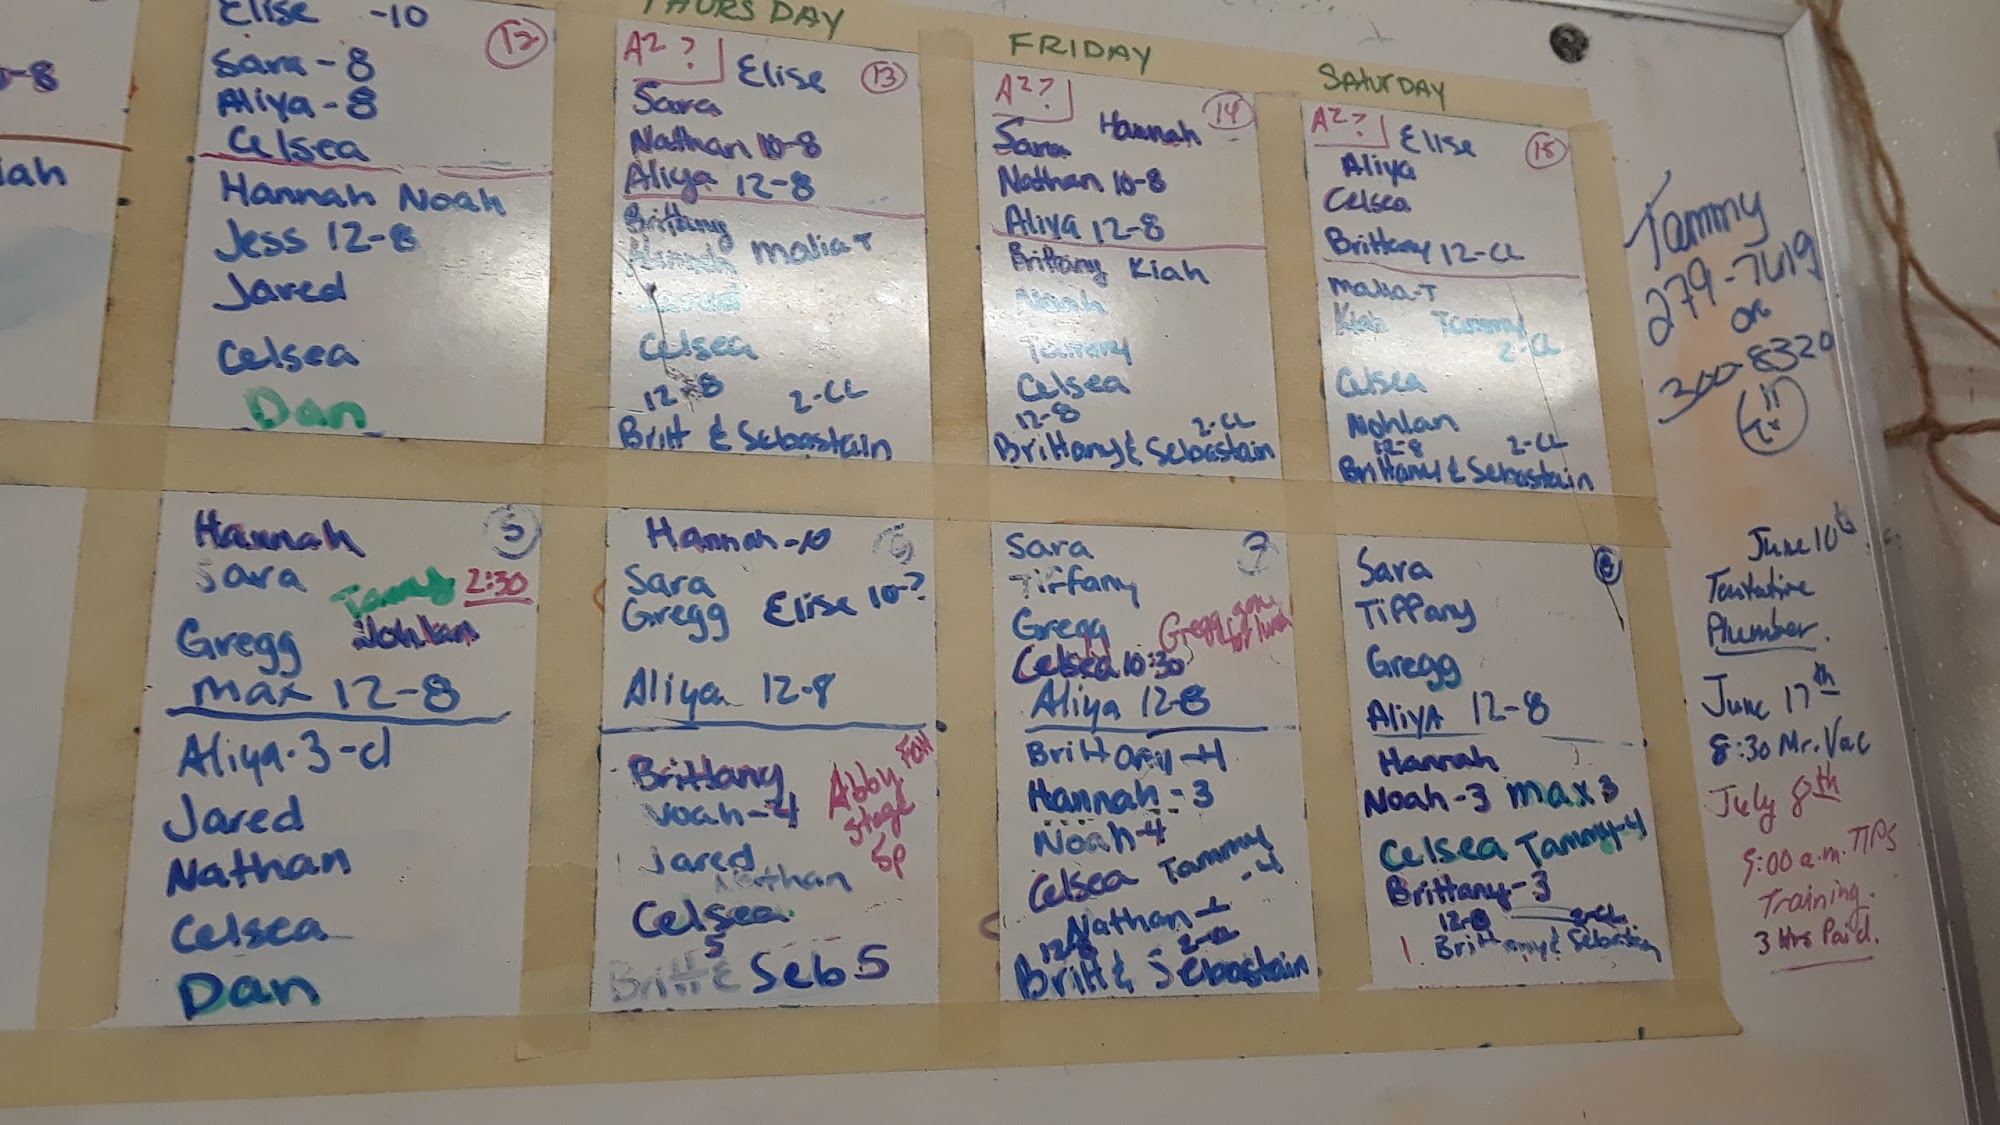 -8
iah
Elise -10
12
Sara - 8
Aliya - 8
Celsea
Hannah Noah
Jess 12-8
Jared
Celsea
Dan
THURSDAY
A2? Elise 13
Sara
Nathan 10-8
Aliya 12-8
Brittany
Hannah Malia-T
Celsea
12-8 2-CL
Britt & Sebastain
FRIDAY
A2? Hannah 14
Sara
Nathan 10-8
Aliya 12-8
Brittany Kiah
Noah
Tammy
Celsea
12-8 2-CL
Brittany & Sebastain
SATURDAY
A2? Elise 15
Aliya
Celsea
Brittany 12-CL
Malia-T
Kiah Tammy
2-CL
Celsea
Nohlan
12-8 2-CL
Brittany & Sebastain
Tammy
279-7619
or
300-8320
Hannah 5
Sara
Tammy 2:30
Gregg Nohlan
Max 12-8
Aliya-3-cl
Jared
Nathan
Celsea
Dan
Hannah-10 6
Sara
Gregg Elise 10-?
Aliya 12-8
Brittany
Noah-4
Abby FOH
stage
5p
Jared
Nathan
Celsea
5
Britt & Seb 5
Sara 7
Tiffany
Gregg Gregg gone
for lunch
Celsea 10:30
Aliya 12-8
Brittany-4
Hannah-3
Noah-4
Celsea Tammy
-4
Nathan
12-8 2-CL
Britt & Sebastain
Sara 8
Tiffany
Gregg
Aliya 12-8
Hannah
Noah-3 Max 3
Celsea Tammy-4
Brittany-3
12-8 2-CL
Brittany & Sebastain
June 10th
Tentative
Plumber.
June 17th
8:30 Mr. Vac
July 8th
9:00 a.m. TIPS
Training.
3 Hrs Paid.